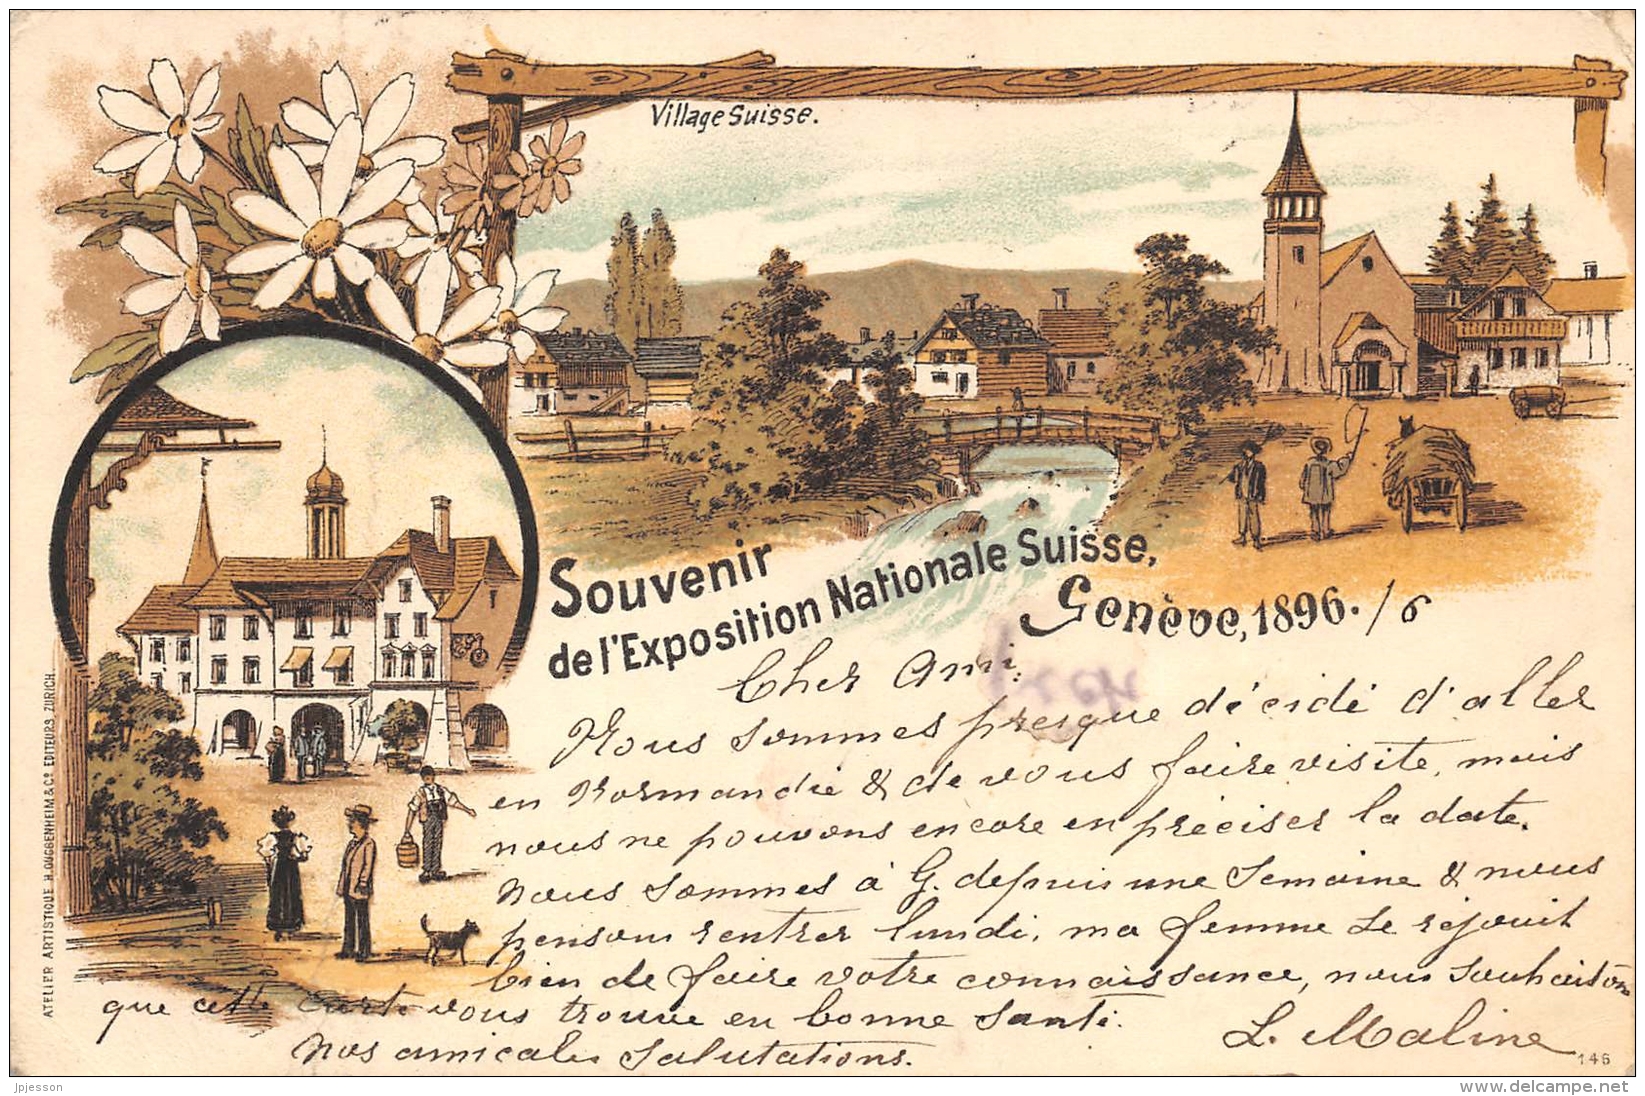 Village Suisse.
Souvenir
de l'Exposition Nationale Suisse,
Genève, 1896. /6
Cher Ami.
Nous sommes presque décidé d'aller
en Normandie & de vous faire visite, mais
nous ne pouvons encore en préciser la date.
Nous sommes à G. depuis une semaine & nous
pensons rentrer lundi, ma femme se réjouit
bien de faire votre connaissance, nous souhaitons
que cette carte vous trouve en bonne santé.
Nos amicales salutations.
L. Maline
146
ATELIER ARTISTIQUE H. GUGGENHEIM & Co EDITEURS ZURICH.
jpjesson
www.delcampe.net